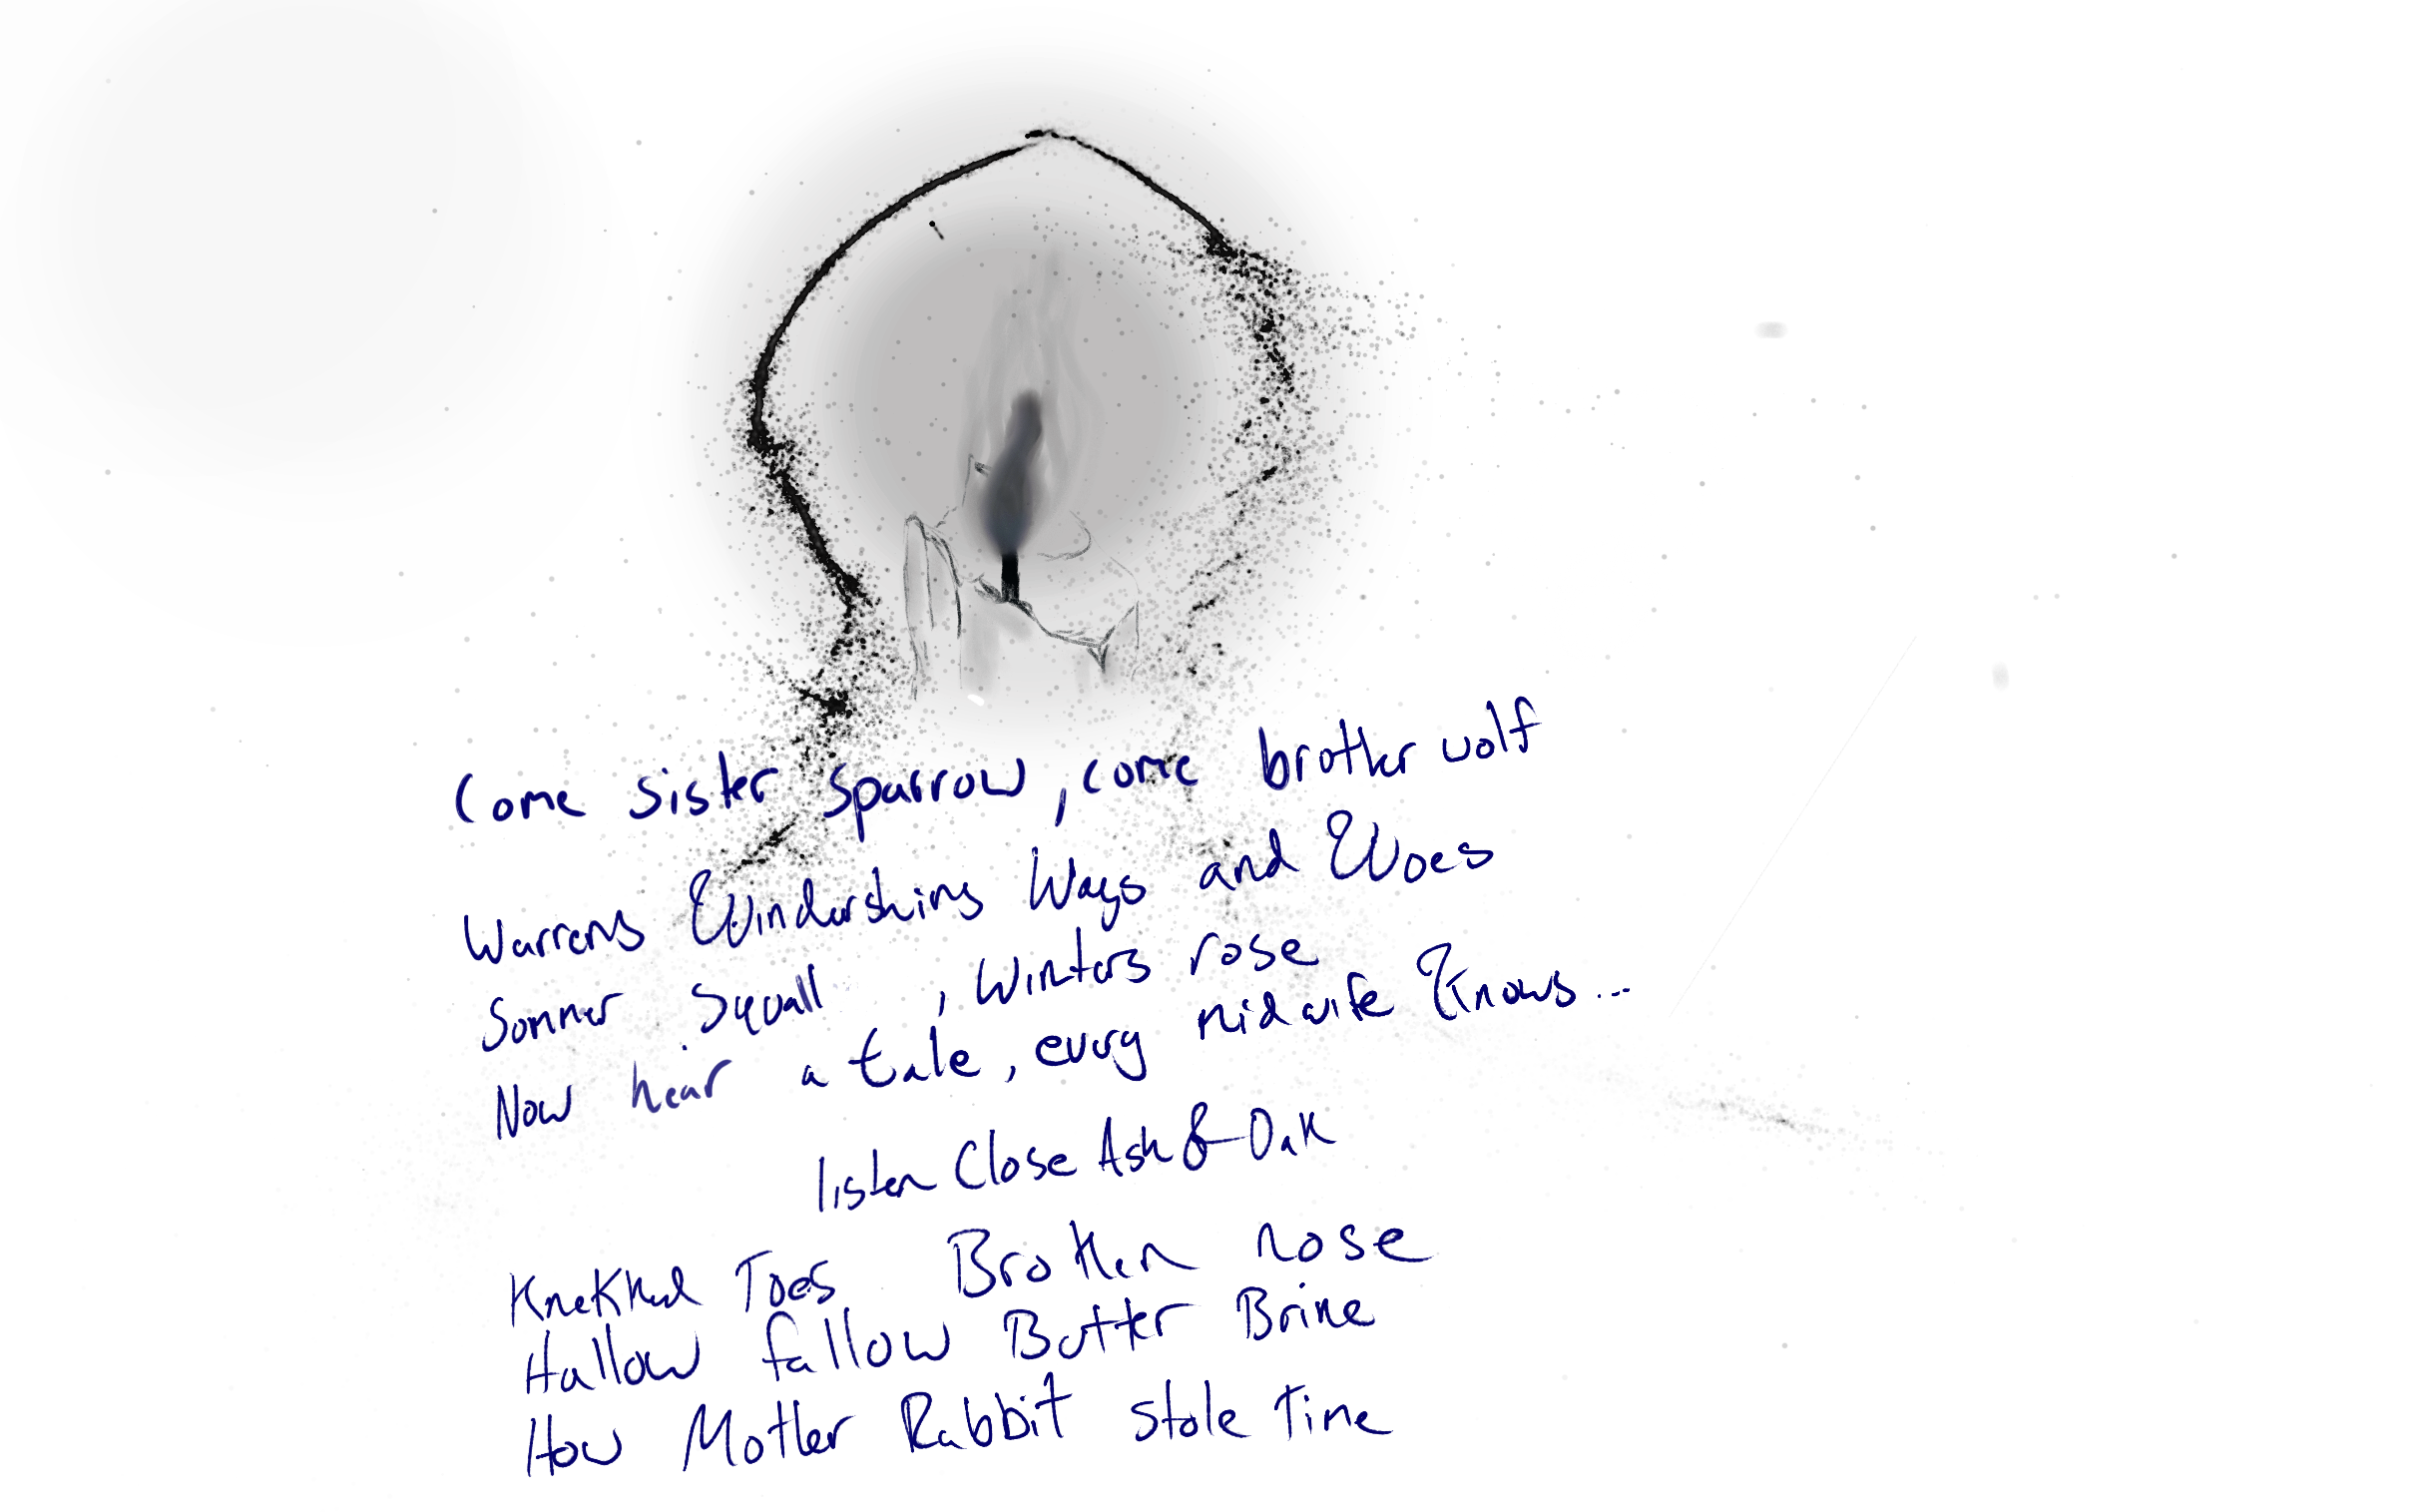 Come sister sparrow, come brother wolf
Warrens Windershins Ways and Woes
Sommer Squall, Winters rose
Now hear a tale, every midwife Knows...
listen Close Ash & Oak
Toes Broken nose
Hallow fallow Butter Brine
How Mother Rabbit stole Time